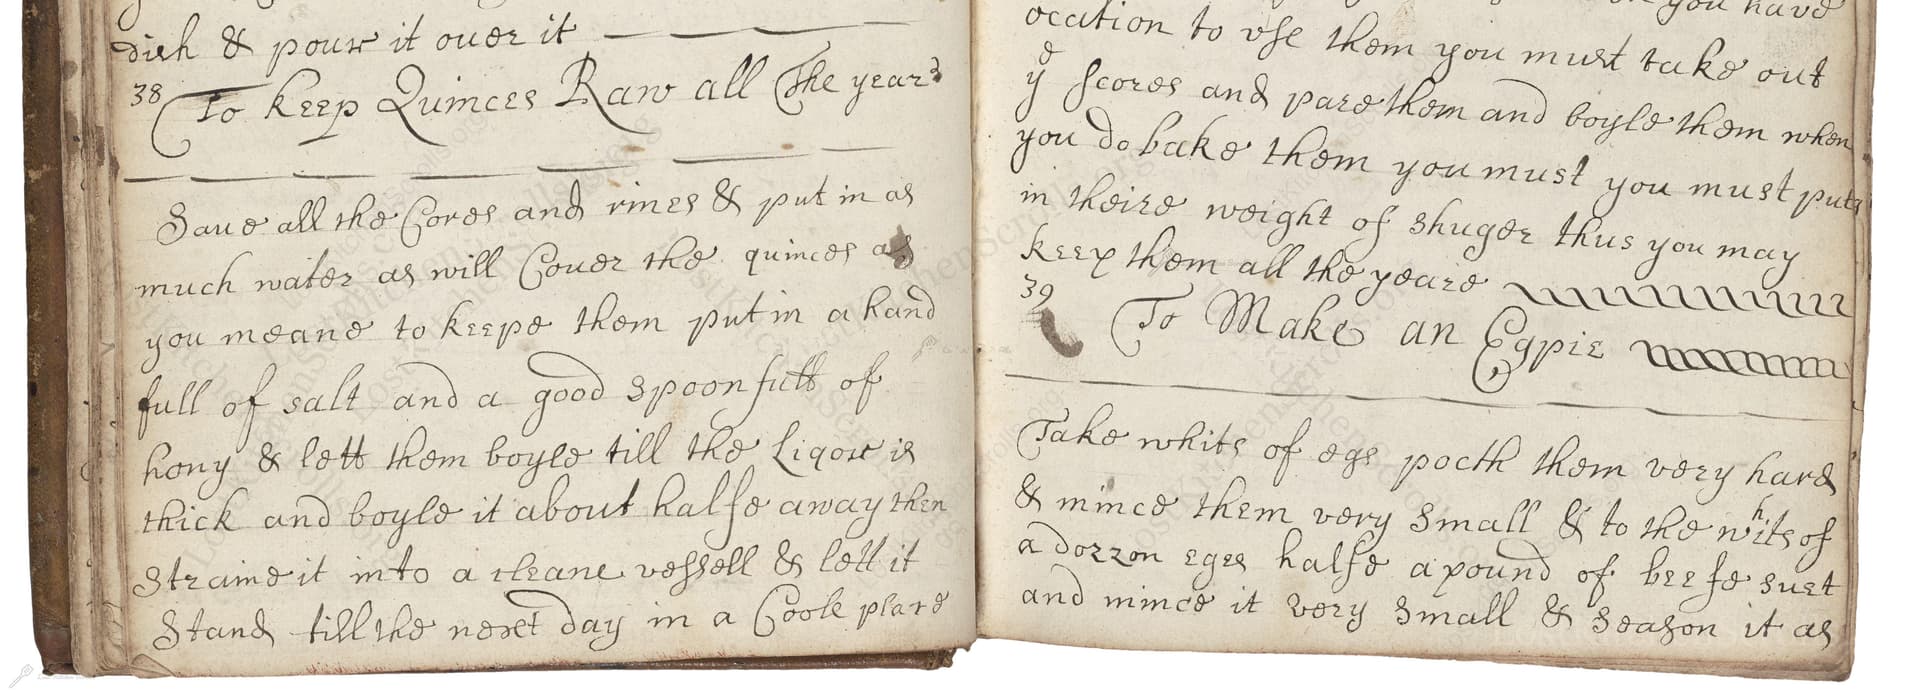 dish & pour it over it
38
To keep Quinces Raw all The year
Save all the Cores and rines & put in as
much water as will Couer the quinces as
you meane to keepe them put in a hand
full of salt and a good spoonfull of
hony & lett them boyle till the Liqour is
thick and boyle it about halfe away then
straine it into a cleane vessell & lett it
Stand till the next day in a Coole place
you have
ocation to vse them you must take out
ye scores and pare them and boyle them when
you do bake them you must you must put
in theire weight of shuger thus you may
keep them all the yeare
39
To Make an Egpie
Take whits of egs pocth them very hard
& mince them very small & to the whits of
a dozzon eges halfe a pound of beefe suet
and mince it very small & season it as